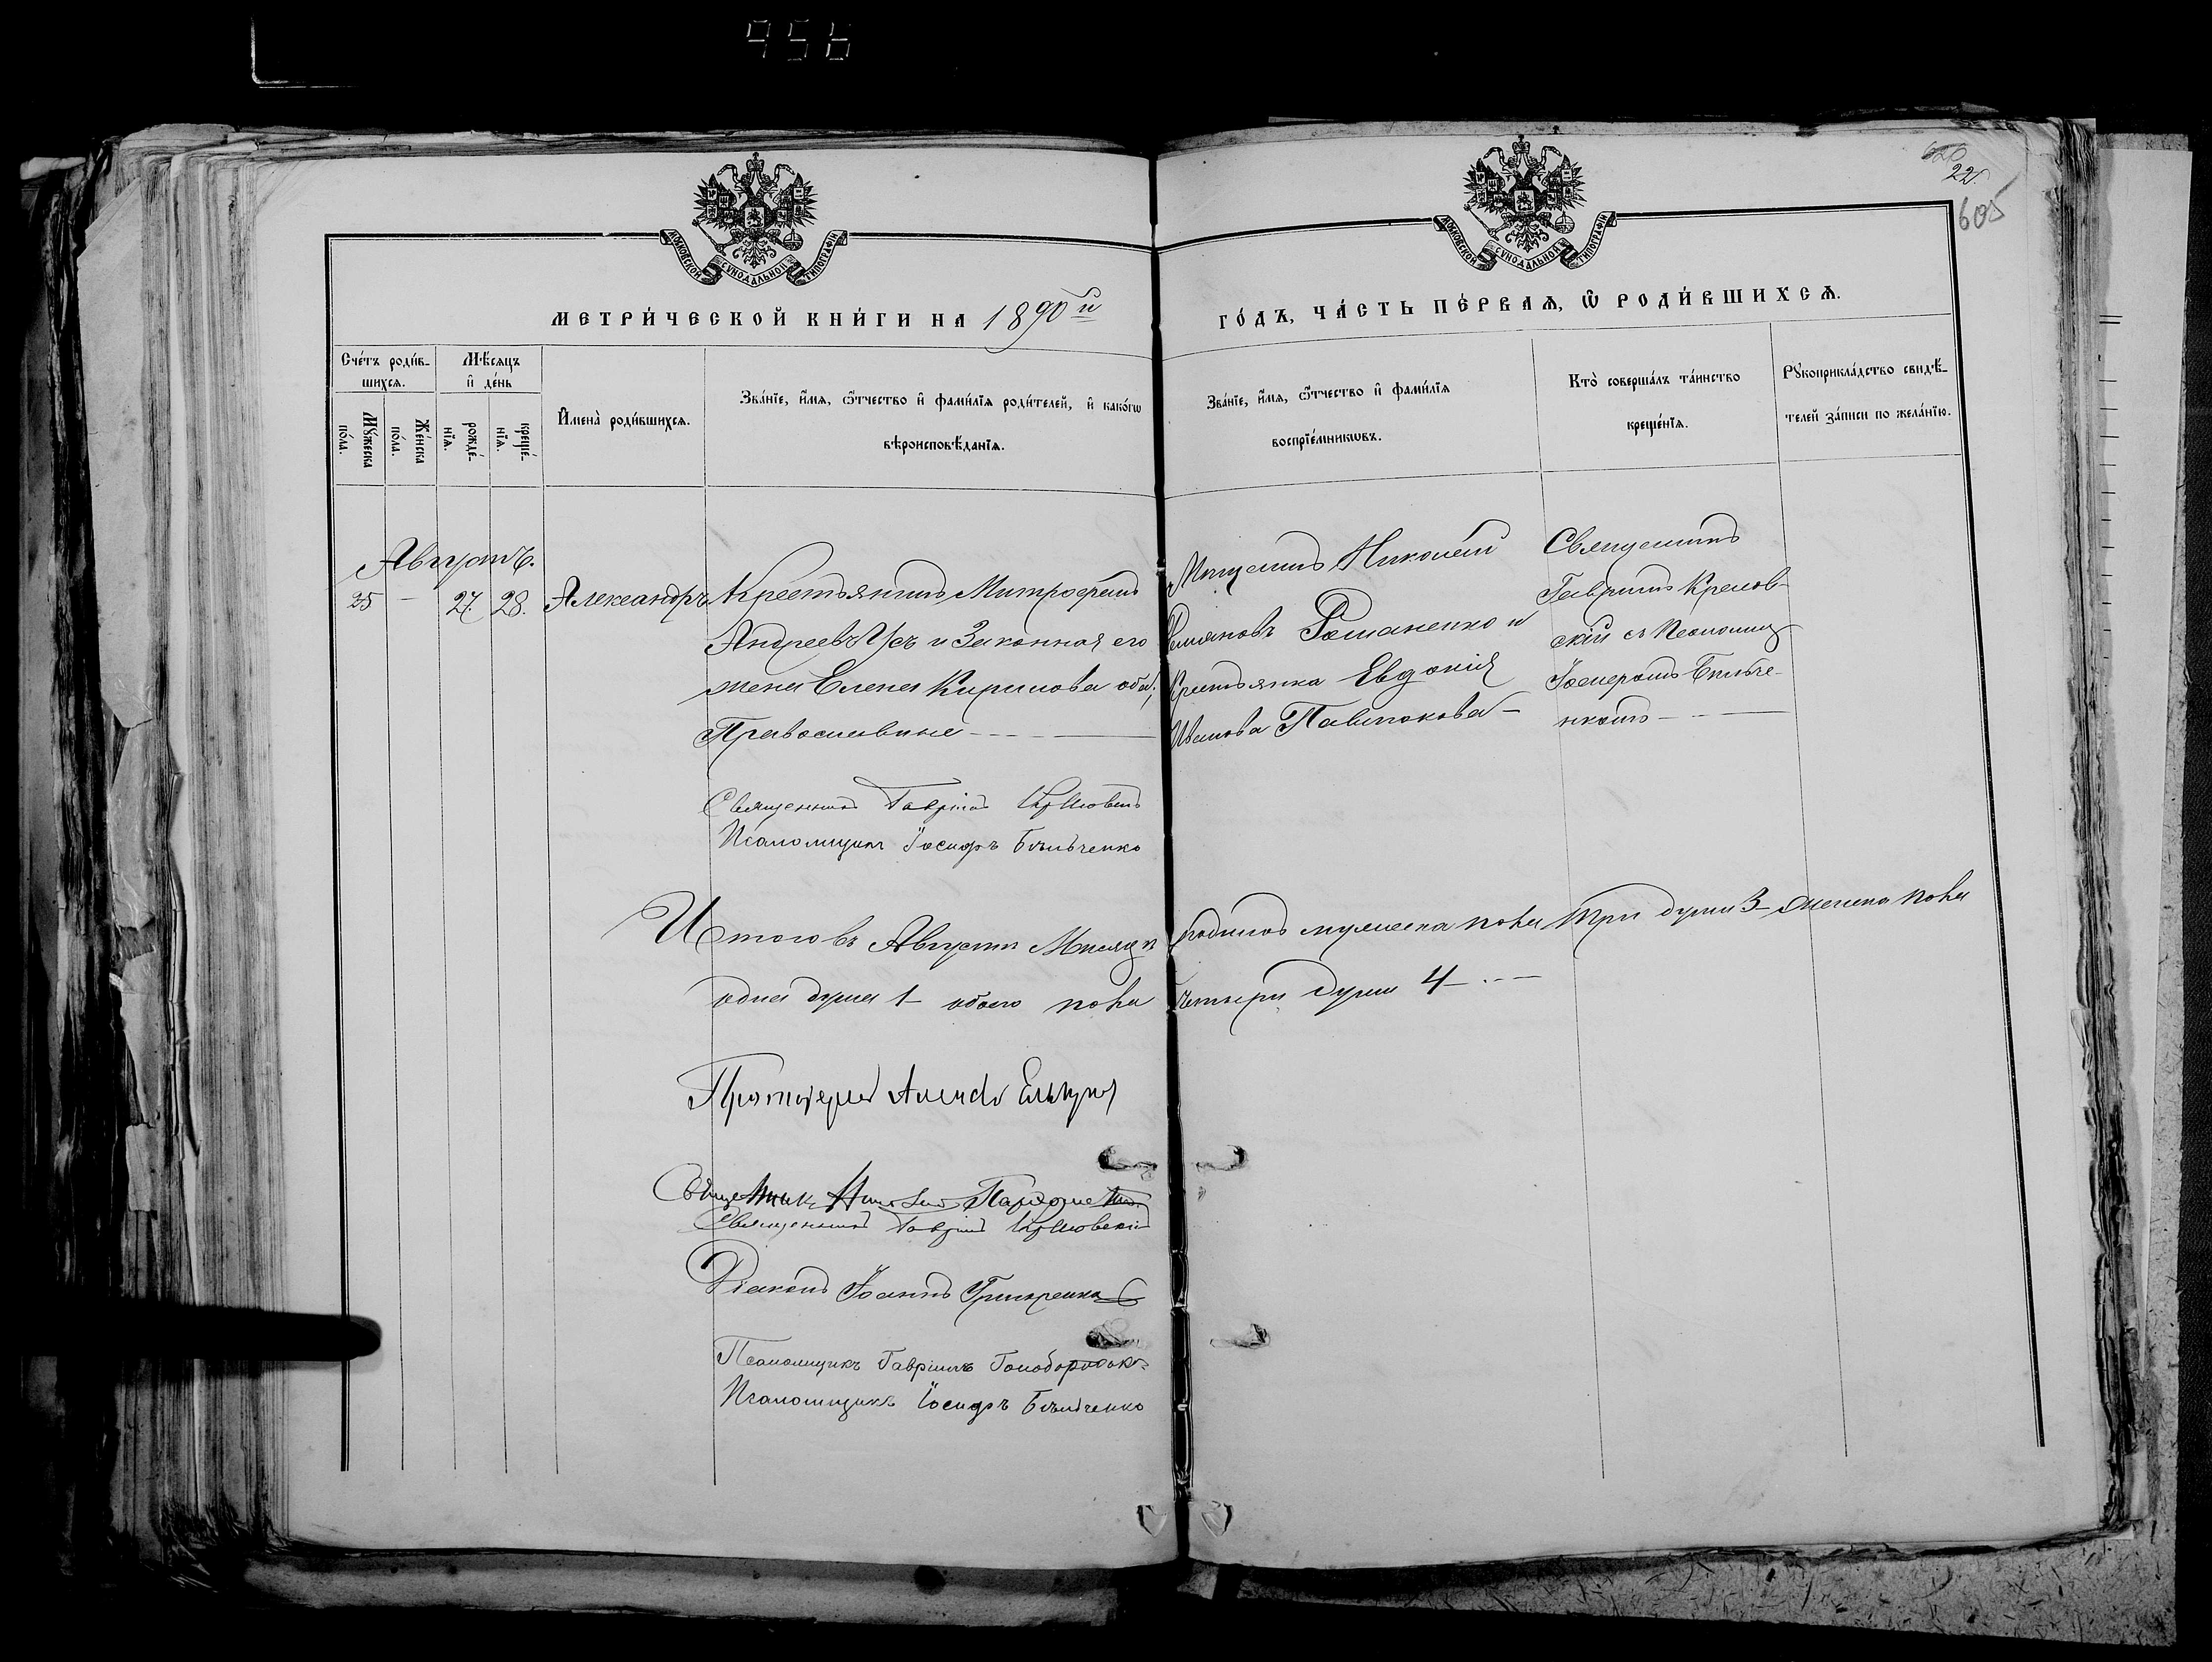 956
22
605
МОСКОВСКОЙ СУНОДАЛЬНОЙ ТИПОГРАФІИ
МОСКОВСКОЙ СУНОДАЛЬНОЙ ТИПОГРАФІИ
МЕТРИ́ЧЕСКОЙ КНИ́ГИ НА 1890й
ГО́ДЪ, ЧА́СТЬ ПЕ́РВАЯ, Ѡ РОДИ́ВШИХСЯ.
Сче́тъ роди́в-
шихся.
Мꙋ́жеска
по́ла.
Же́нска
по́ла.
Мѣ́сяцъ
и де́нь
рожде́-
нїя.
креще́-
нїя.
Имена̀ роди́вшихся.
Зва́нїе, и́мя, ѻ́тчество и фами́лїя роди́телей, и како́гѡ
вѣроисповѣ́данїя.
Зва́нїе, и́мя, ѻ́тчество и фами́лїя
воспрїе́мникѡвъ.
Кто̀ соверша́лъ та́инство
креще́нїя.
Рꙋкоприкла́дство свидѣ́-
телей за́писи по жела́нїю.
Августъ.
25 – 27. 28. Александръ
Крестьянинъ Митрофанъ
Андреевъ Усъ и Законная его
жена Елена Кирилова оба
Православные
Мѣщанинъ Николай
Романенко и
Крестьянка Евдокія
Иванова Павлюкова
Священникъ
Гавриилъ
скій съ Псаломщ
Іосифомъ Бѣльче-
нкомъ
Священникъ Гавріилъ
Псаломщикъ Іосифъ Бѣльченко
Итого въ Августѣ Мѣсяцѣ родилось мужеска пола три души 3 женска пола
одна душа 1 обоего пола четыри души 4
Протоіерей
Священник Николай
Священникъ Гавріилъ
Діаконъ Іоаннъ
Псаломщикъ Гавріилъ Голобородько
Псаломщикъ Іосифъ Бѣльченко